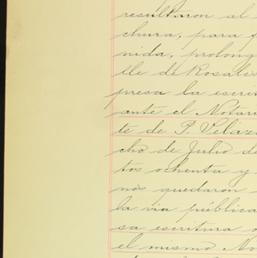 resultaron al
chura, para q
nida, prolong
lle de Rosales
presa la escri
ante el Notari
te de P. Velaz
cho de Julio de
tos ochenta y
nos quedaron
la via pública
sa escritura o
el mismo No